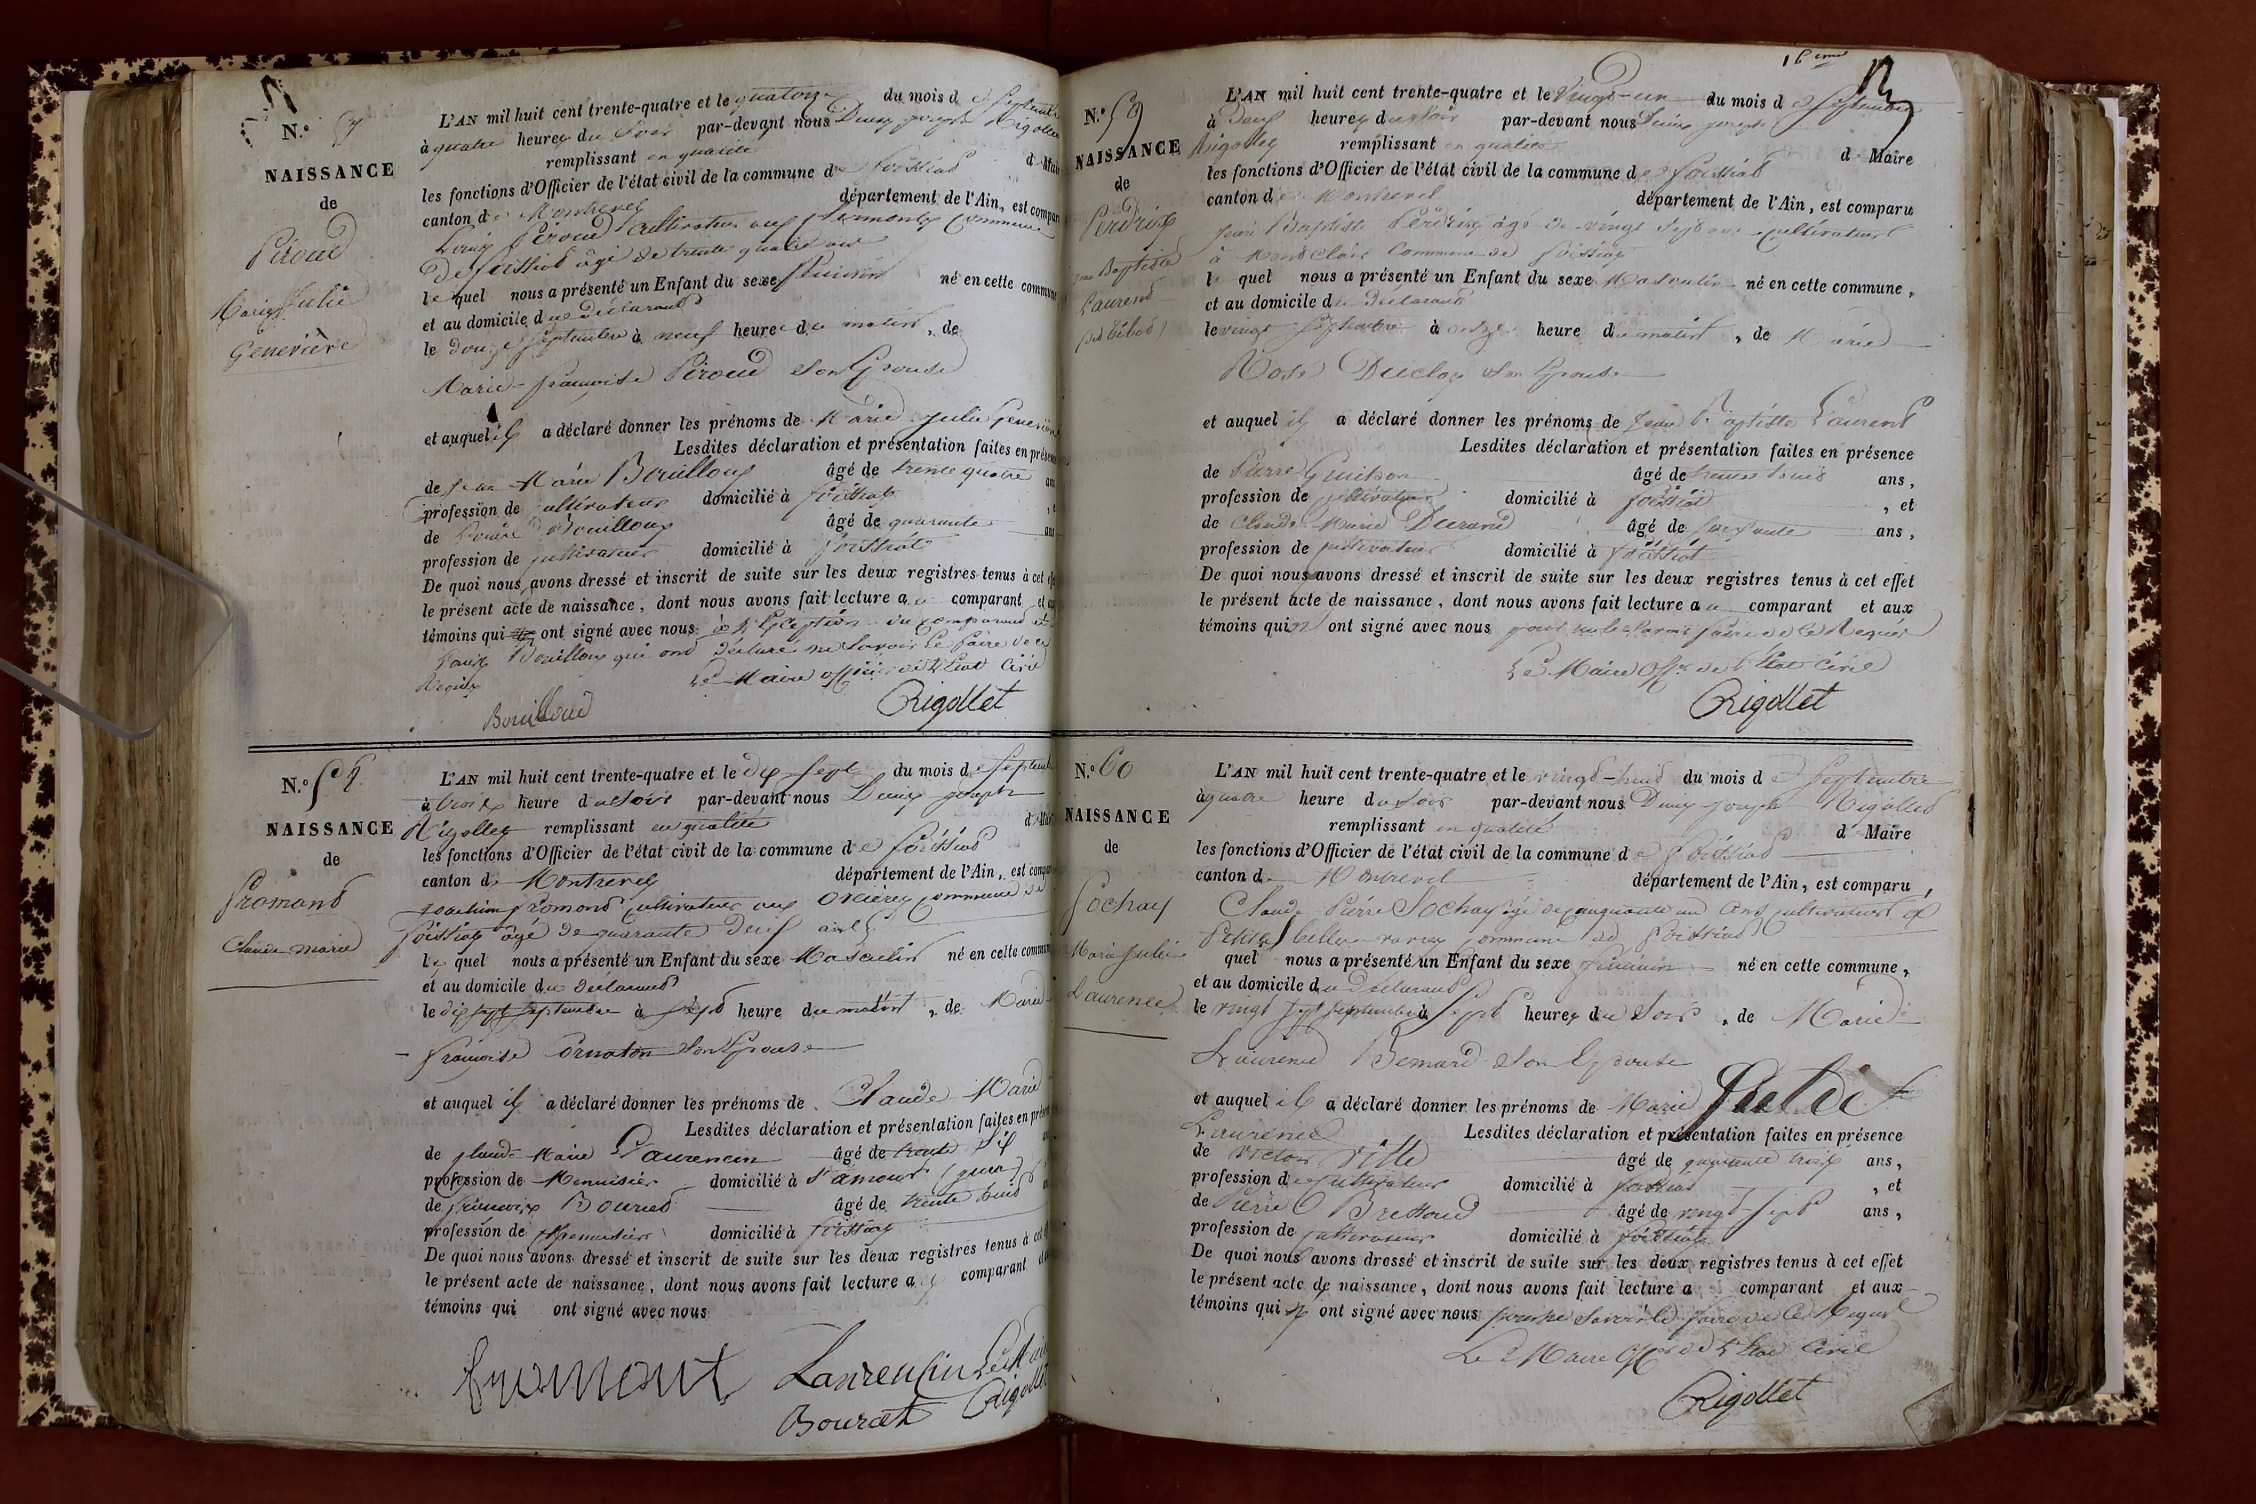 N.° 57
NAISSANCE
de
Piroud
Marie Julie
Geneviève
L'AN mil huit cent trente-quatre et le quatorze du mois de Septembre
à quatre heures du Soir par-devant nous Denis joseph Rigollet
remplissant en qualité de Maire
les fonctions d'Officier de l'état civil de la commune de foissiat
canton de Montrevel département de l'Ain, est comparu
Louis Piroud Cultivateur aux commune
De foissiat âgé de trente quatre ans
le quel nous a présenté un Enfant du sexe féminin né en cette commune
et au domicile du Déclarant
le Douze Septembre à neuf heures du matin, de
Marie françoise Piroud Son Epouse
et auquel il a déclaré donner les prénoms de Marie Julie Geneviève
Lesdites déclaration et présentation faites en présence
de Jean Marie Bouilloux âgé de trente quatre ans
profession de cultivateur domicilié à foissiat, et
de Louis Bouilloux âgé de quarante ans
profession de cultivateur domicilié à foissiat
De quoi nous avons dressé et inscrit de suite sur les deux registres tenus à cet effet
le présent acte de naissance, dont nous avons fait lecture au comparant et aux
témoins qui ont signé avec nous à l'Exception du comparant et
Louis Bouilloux qui ont déclaré ne Savoir le faire de ce
Requis Le Maire officier de l'Etat Civil
Bouilloud Rigollet
N.° 58
NAISSANCE
de
fromont
Claude marie
L'AN mil huit cent trente-quatre et le dix Sept du mois de Septembre
à trois heure du Soir par-devant nous Denis joseph
Rigollet remplissant en qualité de Maire
les fonctions d'Officier de l'état civil de la commune de foissiat
canton de Montrevel département de l'Ain, est comparu
joachim fromont Cultivateur aux Orcières commune de
foissiat âgé de quarante Deux ans
le quel nous a présenté un Enfant du sexe Masculin né en cette commune
et au domicile du déclarant
le dix sept Septembre à Sept heure du matin, de Marie
françoise Cornaton Son Epouse
et auquel il a déclaré donner les prénoms de Claude Marie
Lesdites déclaration et présentation faites en présence
de Claude Marie Laurencin âgé de trente Six
profession de Menuisier domicilié à St amour (jura)
de françois Bouret âgé de trente huit
profession de Menuisier domicilié à foissiat
De quoi nous avons dressé et inscrit de suite sur les deux registres tenus à cet
le présent acte de naissance, dont nous avons fait lecture au comparant et
témoins qui ont signé avec nous
fromont Laurencin Le Maire
Bourat Rigollet
16ème
N.° 59
NAISSANCE
de
Perdrix
jean Baptiste
Laurent
L'AN mil huit cent trente-quatre et le Vingt-un du mois de Septembre
à Deux heures du Soir par-devant nous Denis joseph
Rigollet remplissant en qualité de Maire
les fonctions d'Officier de l'état civil de la commune de foissiat
canton de Montrevel département de l'Ain, est comparu
jean Baptiste Perdrix âgé de vingt Sept ans cultivateur
à Montclair Commune de foissiat
le quel nous a présenté un Enfant du sexe Masculin né en cette commune,
et au domicile du Déclarant
le vingt Septembre à onze heure du matin, de Marie
Rose Duclos Son Epouse
et auquel il a déclaré donner les prénoms de Jean Baptiste Laurent
Lesdites déclaration et présentation faites en présence
de Pierre Guitson âgé de trente trois ans,
profession de cultivateur domicilié à foissiat, et
de Claude Marie Durand âgé de soixante ans,
profession de cultivateur domicilié à foissiat
De quoi nous avons dressé et inscrit de suite sur les deux registres tenus à cet effet
le présent acte de naissance, dont nous avons fait lecture au comparant et aux
témoins qui n'ont signé avec nous pour ne le Savoir faire de ce Requis
Le Maire Offr de l'Etat Civil
Rigollet
N.° 60
NAISSANCE
de
Sochay
Marie Julie
Laurence
L'AN mil huit cent trente-quatre et le vingt-huit du mois de Septembre
à quatre heure du Soir par-devant nous Denis joseph Rigollet
remplissant en qualité de Maire
les fonctions d'Officier de l'état civil de la commune de foissiat
canton de Montrevel département de l'Ain, est comparu,
Claude Pierre Sochay âgé de cinquante un ans cultivateur à
Petite belle commune de foissiat
quel nous a présenté un Enfant du sexe féminin né en cette commune,
et au domicile du Déclarant
le vingt Sept Septembre à Sept heures du Soir, de Marie
Laurence Bernard Son Epouse
et auquel il a déclaré donner les prénoms de Marie Julie
Laurence Lesdites déclaration et présentation faites en présence
de Victor Vitte âgé de quarante trois ans,
profession de cultivateur domicilié à foissiat, et
de Pierre Brettoud âgé de vingt Sept ans,
profession de cultivateur domicilié à foissiat
De quoi nous avons dressé et inscrit de suite sur les deux registres tenus à cet effet
le présent acte de naissance, dont nous avons fait lecture au comparant et aux
témoins qui n'ont signé avec nous pour ne Savoir le faire de ce Requis
Le Maire Offr de l'Etat Civil
Rigollet